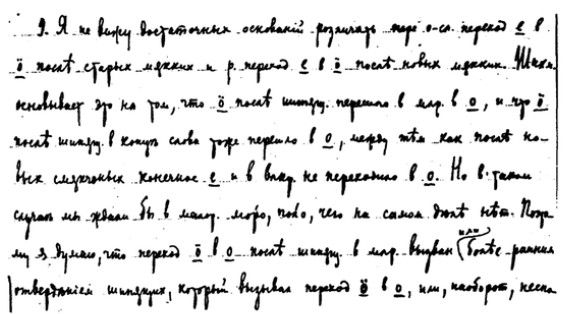 9. Я не вижу достаточных оснований различать переход e в
ö послѣ старых мякких и р. переход e в ö послѣ новых мякких. Шахм.
основывает это на том, что ö послѣ шипящ. перешло в мар. в о, и что ö
послѣ шипящ. в концѣ слова тоже перешло в о, между тѣм как послѣ но-
вых смягченых конечное e и в вкр. не переходило в о. Но в таком
случаѣ мы ждали бы в малор. морō, полō, чего на самом дѣлѣ нѣт. Поэто
му я думаю, что переход ö в о послѣ шипящ. в мар. вызван (или болѣе ранним
отвердѣнием шипящих, который вызывал переход ö в о, или, наоборот, неспо